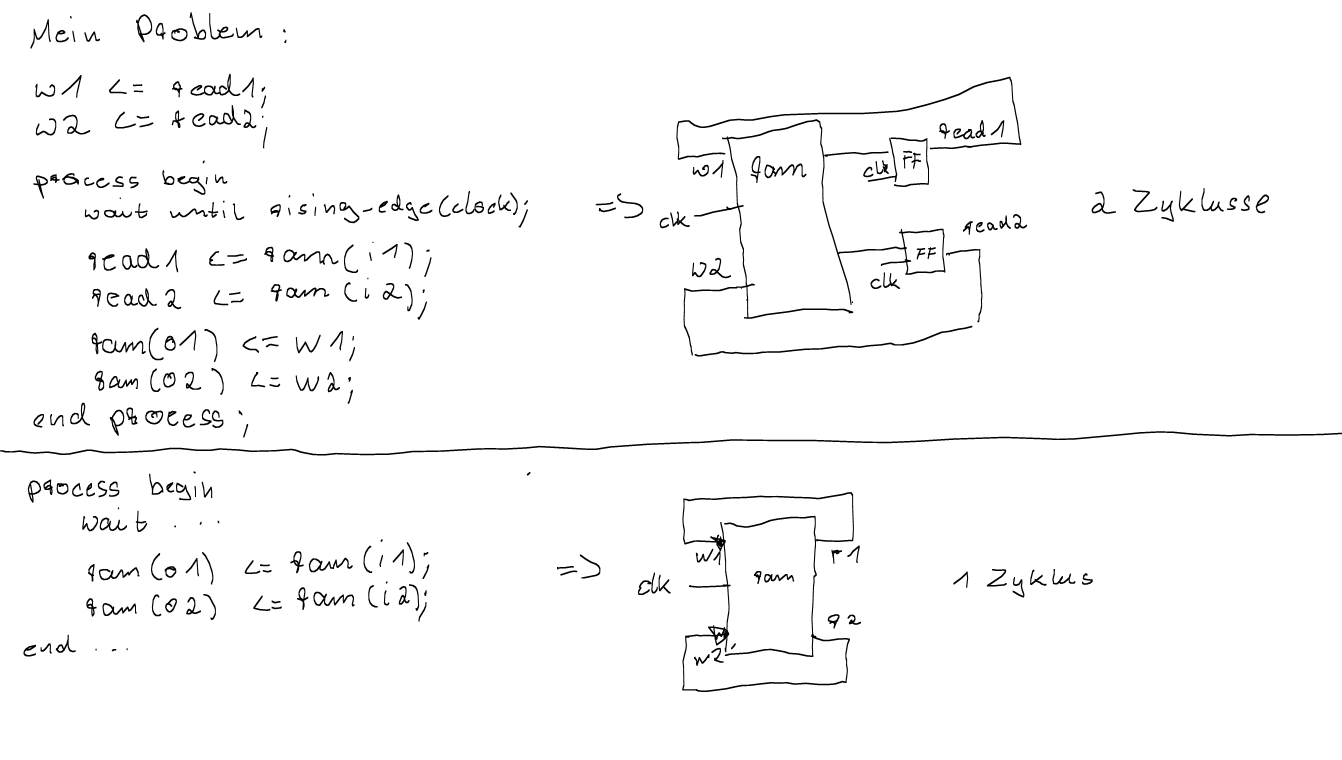 Mein Problem :
w1 <= read1;
w2 <= read2;
process begin
wait until rising-edge(clock);
read1 <= ram(i1);
read2 <= ram(i2);
ram(o1) <= w1;
ram(o2) <= w2;
end process;
=>
w1
ram
clk
w2
clk
FF
read1
clk
FF
read2
2 Zyklusse
process begin
wait ...
ram(o1) <= ram(i1);
ram(o2) <= ram(i2);
end ...
=>
w1
r1
clk
ram
r2
w2
1 Zyklus